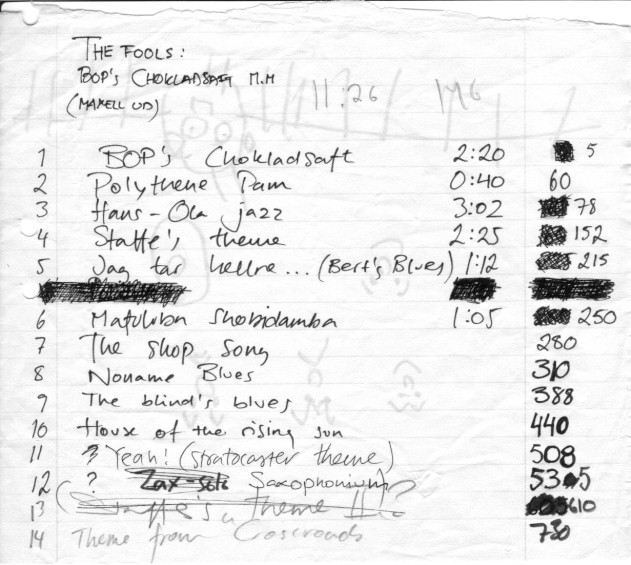 THE FOOLS:
BOP'S CHOKLADSAFT M.M
(MAXELL UD)
11:26 146
1 BOP's Chokladsaft 2:20 5
2 Polythene Pam 0:40 60
3 Hans-Ola jazz 3:02 78
4 Staffe's theme 2:25 152
5 Jag tar hellre... (Bert's Blues) 1:12 215
6 Mafuluba Shobidamba 1:05 250
7 The shop song 280
8 Noname Blues 310
9 The blind's blues 388
10 House of the rising sun 440
11 ? Yeah! (stratocaster theme) 508
12 ? Zax-solo Saxophonium 535
13 (Staffe's theme II)? 610
14 Theme from Crossroads 730